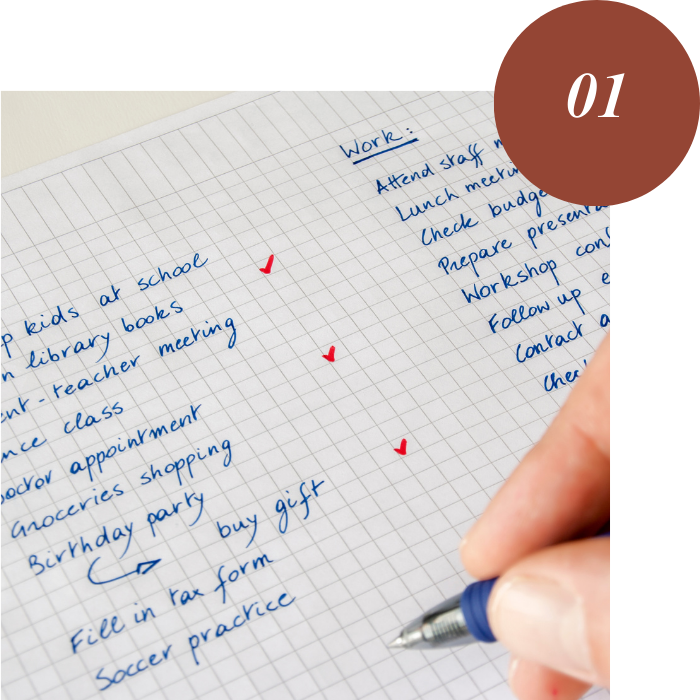 01
Work:
Attend staff
Lunch
Check
Prepare
Workshop
Follow up
Contact
kids at school
library books
teacher meeting
class
appointment
Groceries shopping
Birthday party
buy gift
Fill in tax form
Soccer practice